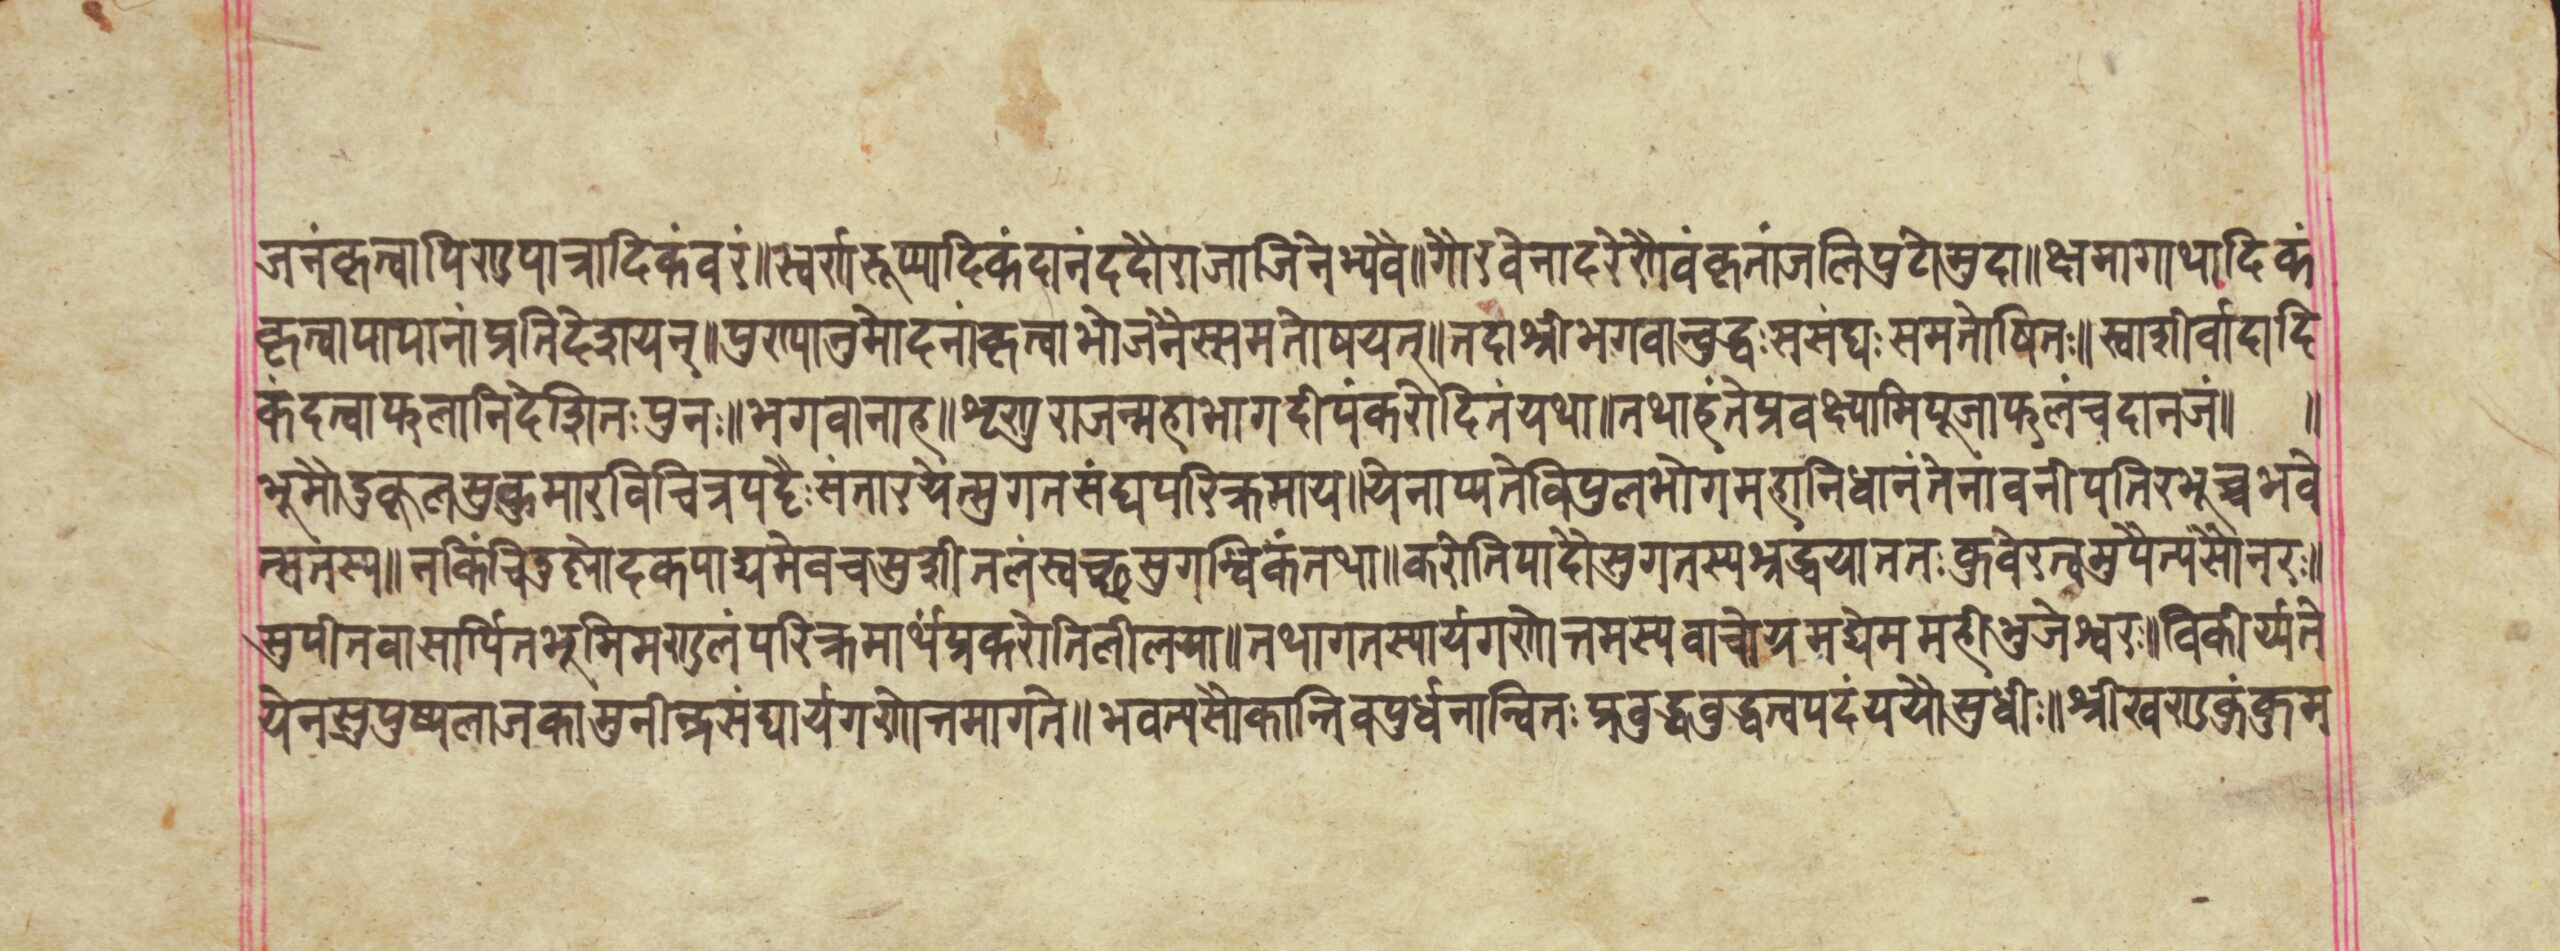 जनंकृत्वापिण्डपात्रादिकंवरं॥स्वर्णरूप्यादिकंदानंददौराजाजिनेभ्यवै॥गौरवेनादरेणैवंकृतांजलिपुटोमुदा॥क्षमागाथादिकं
कृत्वापापानांप्रतिदेशयन्॥पुण्यानुमोदनांकृत्वाभोजनैस्समतोषयत्॥तदाश्रीभगवान्बुद्धःससंघःसमतोषितः॥स्वाशीर्वादादि
कंदत्वाफलानिदेशितःपुनः॥भगवानाह॥शृणुराजन्महाभागदीपंकरोदितंयथा॥तथाहंतेप्रवक्ष्यामिपूजाफलंचदानजं॥ ॥
भूमौदुकूलसुकुमारविचित्रपट्टैःसंतारयेत्सुगतसंघपरिक्रमाय॥येनाप्यतेविपुलभोगमहानिधानंतेनांवनीपतिरभूच्चभवे
त्स्वतस्य॥नकिंचिदुष्णोदकपाद्यमेवचसुशीतलंस्वच्छसुगन्धिकंतथा॥करोतिपादौसुगतस्यश्रद्धयाततःकुवेरत्वमुपैत्यसौनरः॥
सुपीतवासार्पितभूमिमण्डलंपरिक्रमार्थंप्रकरोतिलीलया॥तथागतस्यार्यगणोत्तमस्यवाचोयमद्येममहीभुजेश्वरः॥विकीर्य्यते
येनसुपुष्पलाजकामुनीन्द्रसंघार्यगणोत्तमागते॥भवत्यसौकान्तिवपुर्धनान्वितःप्रबुद्धबुद्धत्वपदंययौसुधीः॥श्रीखण्डकुंकुम